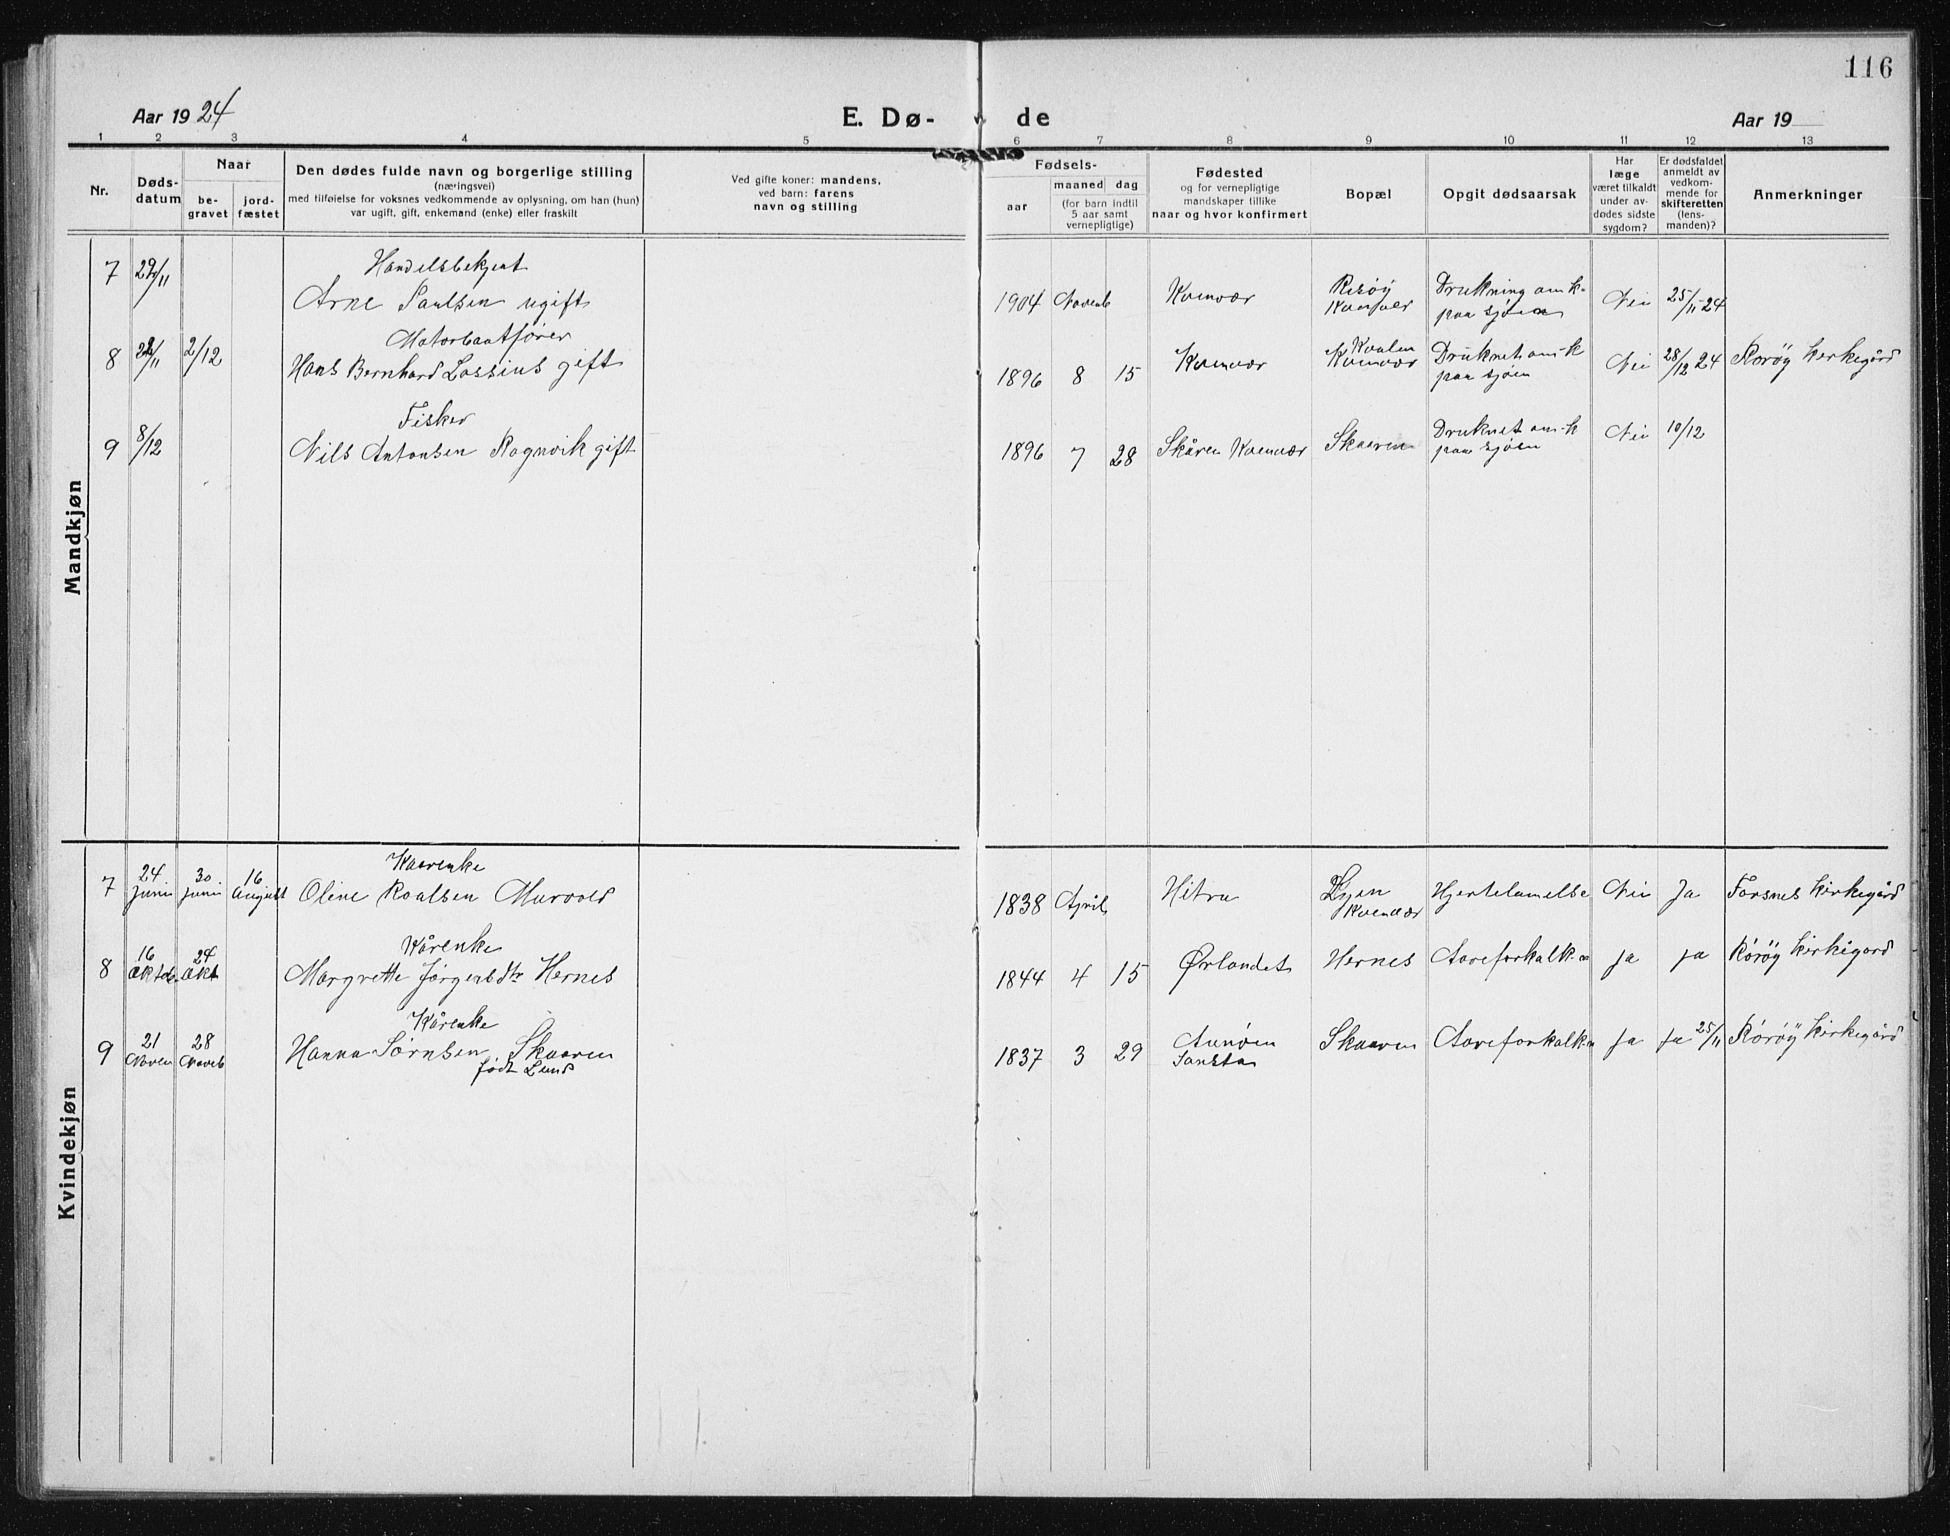 116
Aar 1924
E. Dø-
de
Aar 19
1 2 3 4 5 6 7 8 9 10 11 12 13
Nr.
Døds-
datum
Naar
be-
gravet
jord-
fæstet
Den dødes fulde navn og borgerlige stilling
(næringsvei)
med tilføielse for voksnes vedkommende av oplysning, om han (hun)
var ugift, gift, enkemand (enke) eller fraskilt
Ved gifte koner: mandens,
ved barn: farens
navn og stilling
Fødsels-
aar
maaned dag
(for barn indtil
5 aar samt
vernepligtige)
Fødested
og for vernepligtige
mandskaper tillike
naar og hvor konfirmert
Bopæl
Opgit dødsaarsak
Har
læge
været tilkaldt
under av-
dødes sidste
sygdom?
Er dødsfaldet
anmeldt av
vedkom-
mende for
skifteretten
(lens-
manden)?
Anmerkninger
Mandkjøn
Handelsbetjent
7 /11 Arne Paulsen ugift 1904 Novemb Kvenvær Risøy
Kvenvær Drukning omk.
paa sjøen Nei 25/11 24
Motorbaatfører
8 22/11 2/12 Hans Bernhard Lossius gift 1896 8 15 Kvenvær Kvalen
Kvenvær Druknet omk
paa sjøen Nei 28/12 24 Rørøy kirkegård
Fisker
9 8/12 Nils Antonsen Ragnvik gift 1896 7 28 Skåren Kvenvær Skaaren Druknet omk
paa sjøen Nei 10/12
Kvindekjøn
Kaarenke
7 24
juni 30
juni 16
August Oline Roalsen Murvold 1838 April Hitra
Kvenvær Hjertelamelse Nei Ja Forsnes kirkegård
Kårenke
8 16
Oktob 24
Okt Margrette Jørgensdtr Hernes 1844 4 15 Ørlandet Hernes Aareforkalk.n ja ja Rørøy kirkegård
Kårenke
9 21
Novem 28
Novemb Hanna Sørnsen Skaaren
født Lund 1837 3 29 Aunøen
Skaaren Aareforkalk.n ja Ja 25/11 Rørøy kirkegård